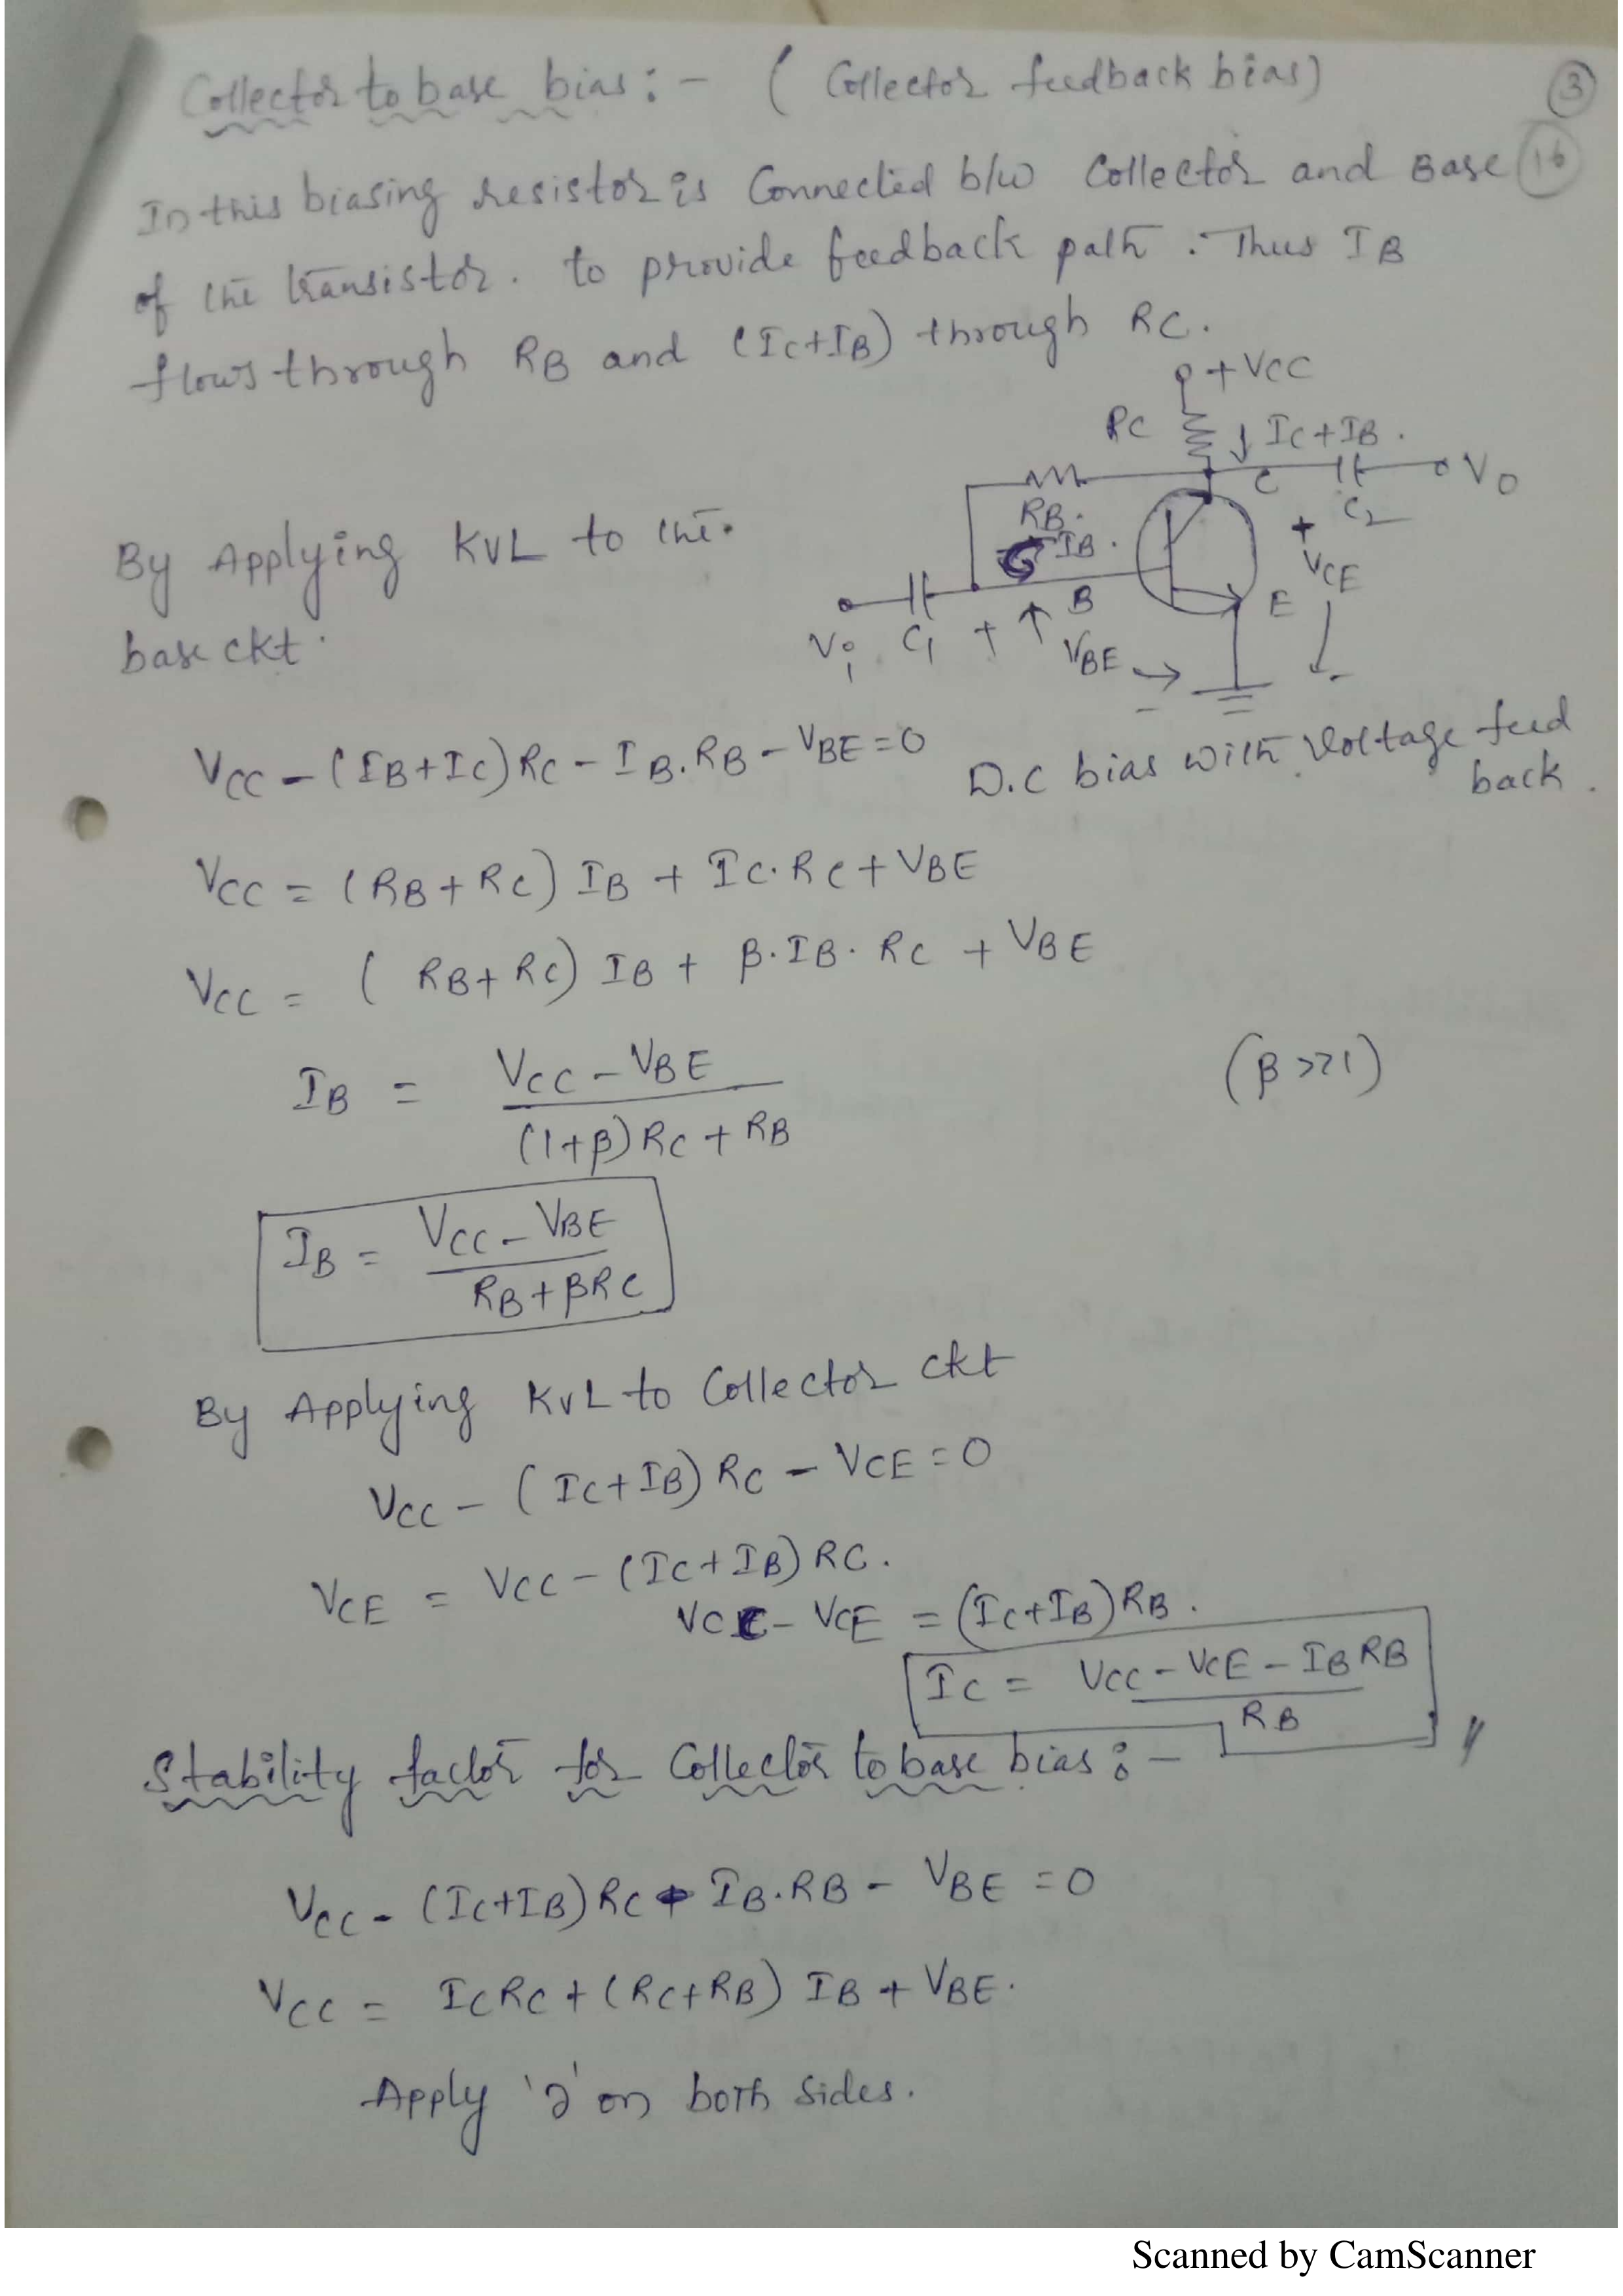 Collector to base bias :- ( Collector feedback bias)
3
In this biasing resistor is Connected b/w Collector and Base
16
of the transistor. to provide feedback path. Thus IB
flows through RB and (IC+IB) through RC.
+VCC
RC
IC+IB.
VO
C
C2
RB.
IB.
+
VCE
By Applying KVL to the.
B
E
Vi
C1
+
VBE
-
-
base ckt.
VCC - (IB+IC)RC - IB.RB - VBE = 0
D.C bias with voltage feed
back.
VCC = (RB+RC) IB + IC.RC + VBE
VCC = ( RB+RC) IB + β.IB.RC + VBE
IB = VCC - VBE
(1+β)RC + RB
(β>>1)
IB = VCC - VBE
RB+βRC
By Applying KVL to Collector ckt
VCC - (IC+IB) RC - VCE = 0
VCE = VCC - (IC+IB) RC.
VCC - VCE = (IC+IB)RB.
IC = VCC - VCE - IBRB
RB
Stability factor for Collector to base bias :-
VCC - (IC+IB)RC - IB.RB - VBE = 0
VCC = ICRC + (RC+RB) IB + VBE.
Apply '∂' on both sides.
Scanned by CamScanner